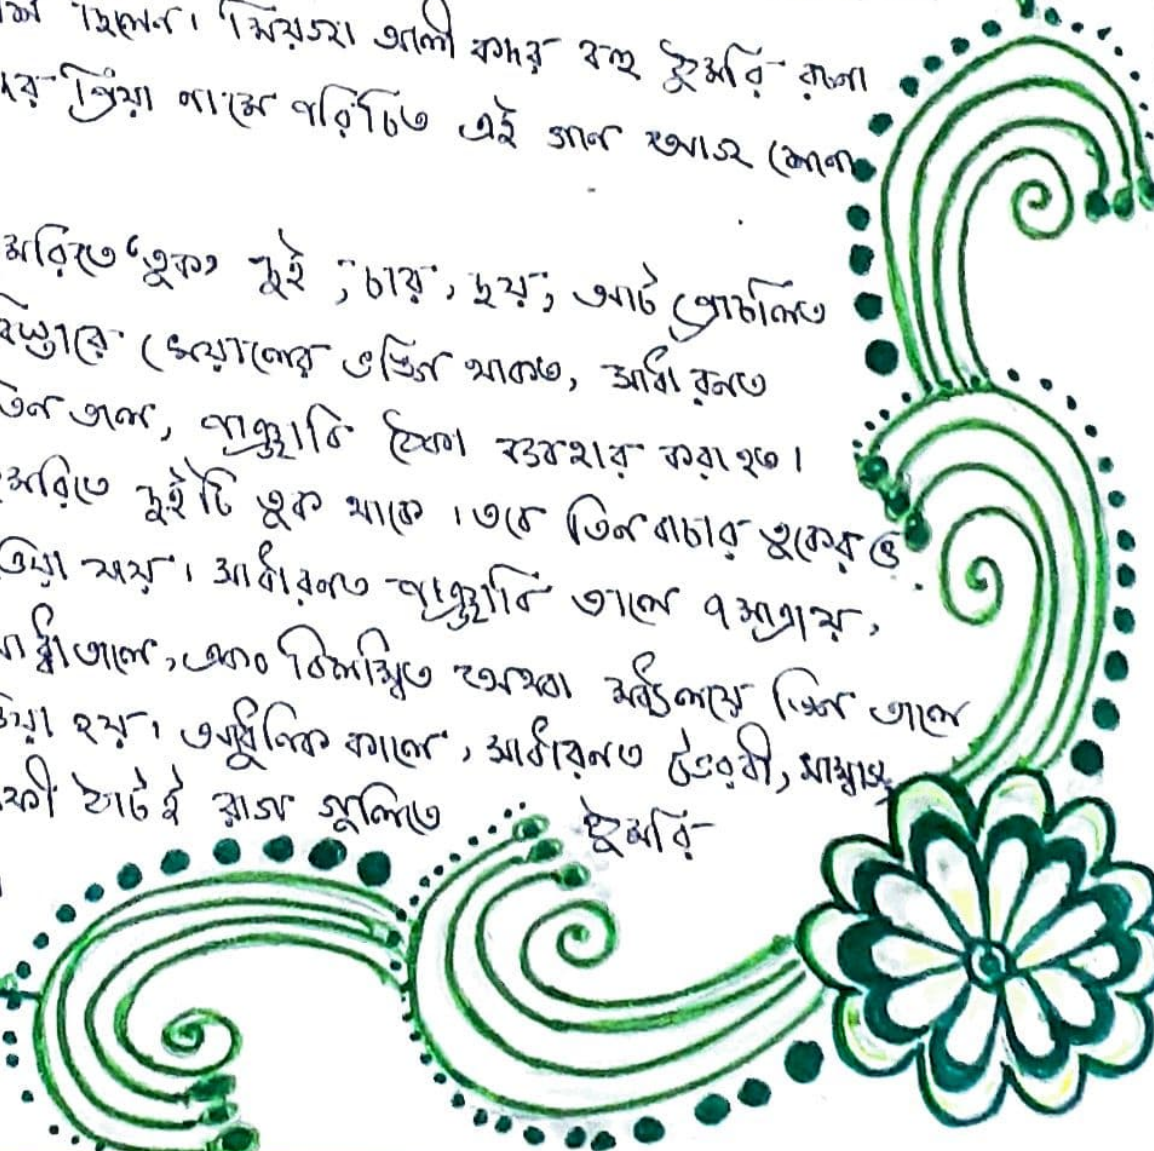 ছিলেন। মিয়জা আলী কদর বহু ঠুমরি রচনা
প্রিয়া নামে পরিচিত এই গান আজ শোনা
মরিতে 'তুক' দুই, চার, ছয়, আট প্রচলিত
খেয়ালের ভঙ্গি থাকত, সাধারনত
তিন তাল, পাঞ্জাবি ঠেকা ব্যবহার করা হত।
মরিতে দুইটি তুক থাকে। তবে তিন বা চার তুকেরও
যায়। সাধারনত পাঞ্জাবি তালে ৭ মাত্রায়,
তালে, এবং বিলম্বিত অথবা মধ্যলয়ে তিন তালে
হয়। আধুনিক কালে, সাধারনত ভৈরবী, খাম্বাজ
ঠাটেই রাগ গুলিতে ঠুমরি